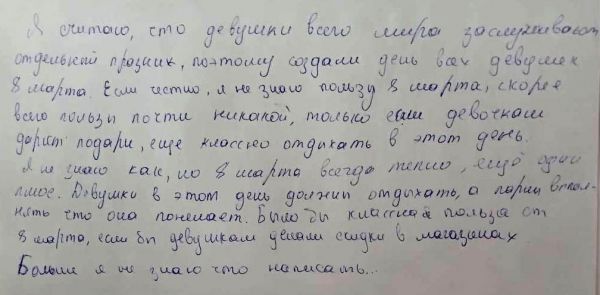 Я считаю, что девушки всего мира заслуживают
отдельный празник, поэтому создали день всех девушек
8 марта. Если честно, я не знаю пользу 8 марта, скорее
всего пользы почти никакой, только если девочкам
дарят подари, еще классно отдыхать в этот день.
Я не знаю как, но 8 марта всегда тепло, ещё один
плюс. Девушки в этом день должны отдыхать, а парни выпол-
нять что она понемает. Было бы классная польза от
8 марта, если бы девушкам делали скидки в магазинах
Больше я не знаю что написать...